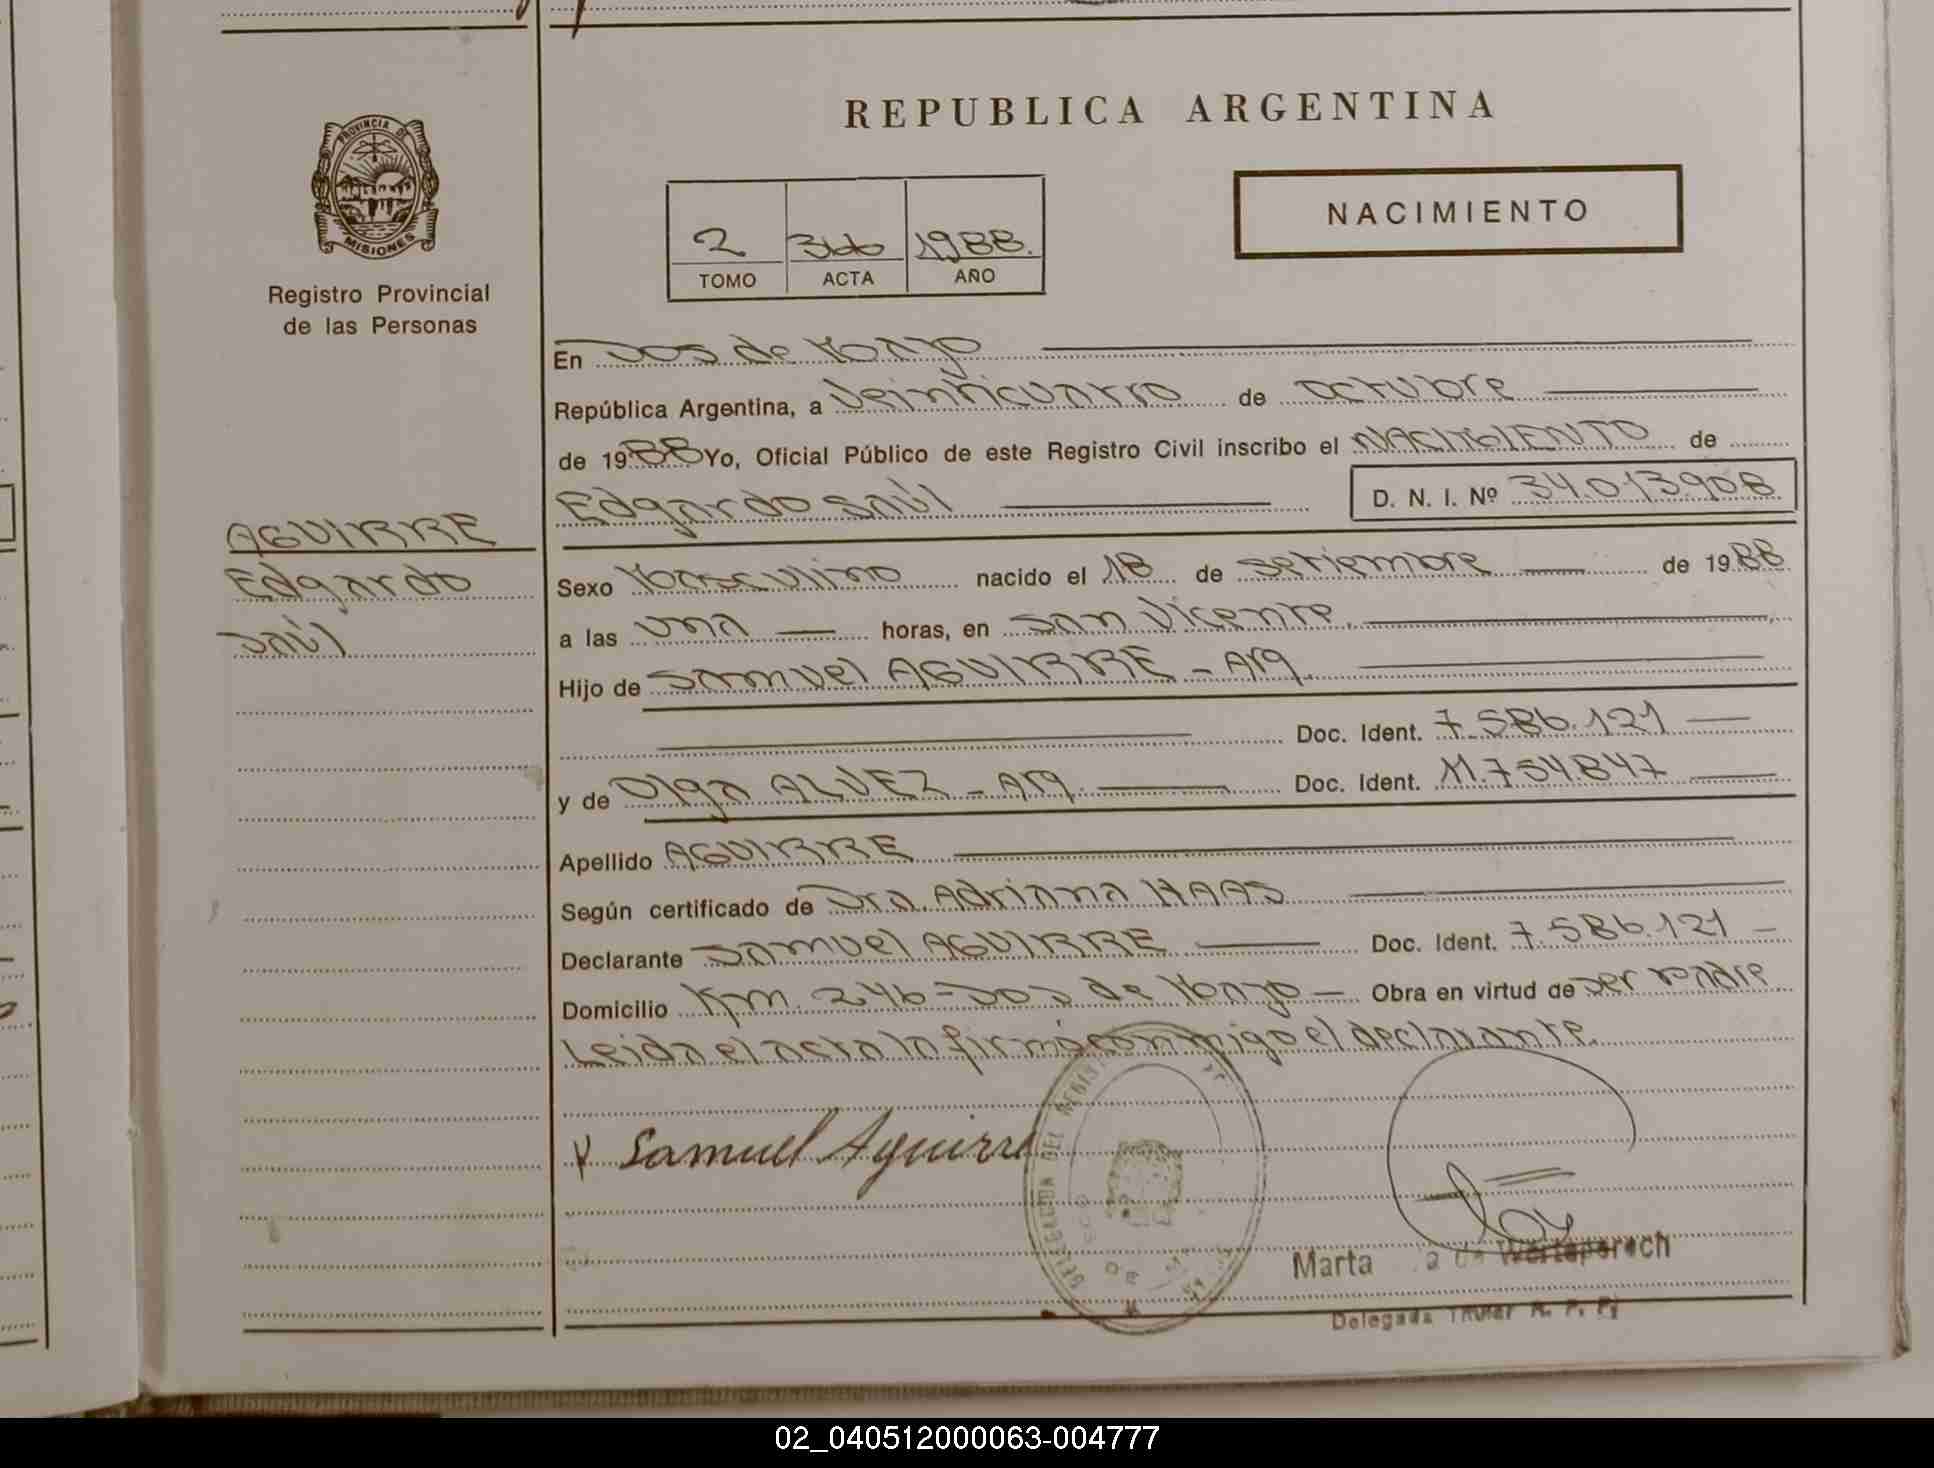 REPUBLICA ARGENTINA
PROVINCIA DE
MISIONES
Registro Provincial
de las Personas
NACIMIENTO
2 366 1988.
TOMO ACTA AÑO
En Dos de Mayo
República Argentina, a Veinticuatro de octubre
de 1988 Yo, Oficial Público de este Registro Civil inscribo el NACIMIENTO de
Edgardo Saúl D. N. I. Nº 34.013.908
AGUIRRE
Edgardo
Saúl
Sexo Masculino nacido el 18 de setiembre de 1988
a las una horas, en San Vicente.
Hijo de Samuel AGUIRRE - Arg.
Doc. Ident. 7.586.121
y de Olga ALVEZ - Arg. Doc. Ident. 11.754.847
Apellido AGUIRRE
Según certificado de Dra Adriana HAAS
Declarante Samuel AGUIRRE Doc. Ident. 7.586.121
Domicilio Km. 246 - Dos de Mayo Obra en virtud de ser padre
Leida el acta la firmó conmigo el declarante.
Samuel Aguirre
DELEGACION DEL
Marta de
Delegada Titular R. P. P.
02_040512000063-004777